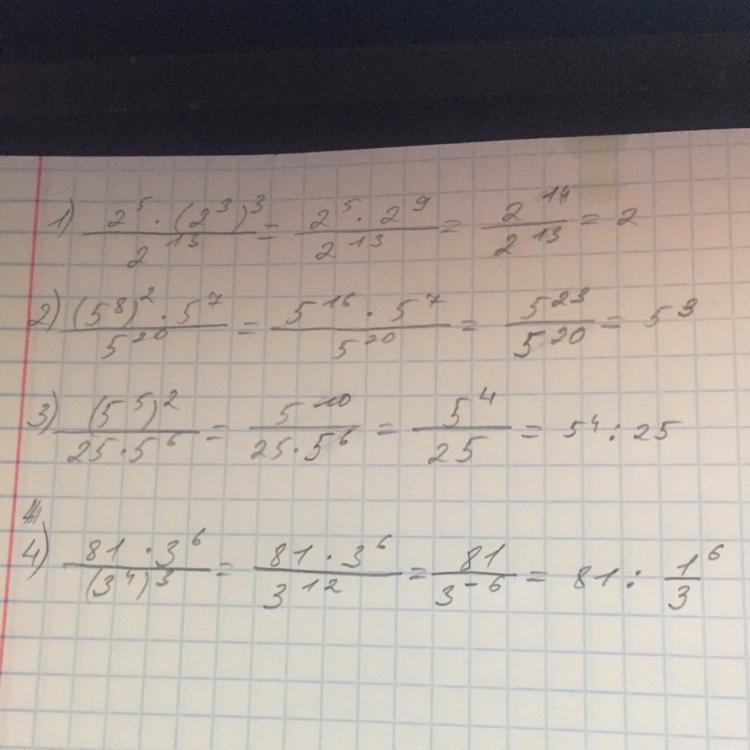 1) \frac{2^5 \cdot (2^3)^3}{2^{13}} = \frac{2^5 \cdot 2^9}{2^{13}} = \frac{2^{14}}{2^{13}} = 2
2) \frac{(5^8)^2 \cdot 5^7}{5^{20}} = \frac{5^{16} \cdot 5^7}{5^{20}} = \frac{5^{23}}{5^{20}} = 5^3
3) \frac{(5^5)^2}{25 \cdot 5^6} = \frac{5^{10}}{25 \cdot 5^6} = \frac{5^4}{25} = 5^4 : 25
4) \frac{81 \cdot 3^6}{(3^4)^3} = \frac{81 \cdot 3^6}{3^{12}} = \frac{81}{3^{-6}} = 81 : \frac{1}{3}^6